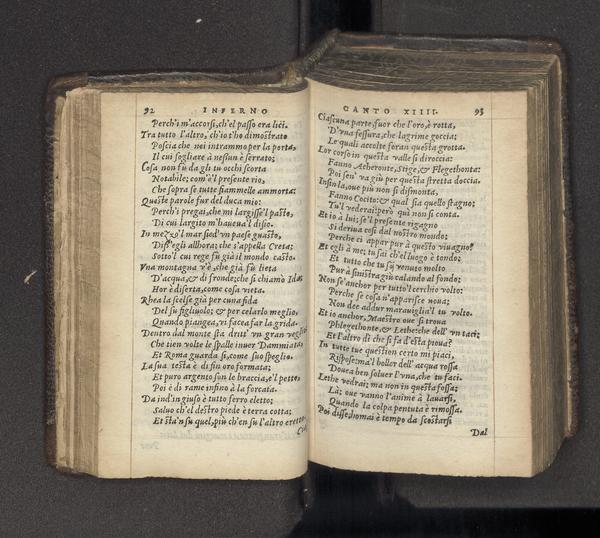 92 INFERNO
Perch'i m'accorsi, ch'el passo era lici.
Tra tutto l'altro, ch'io t'ho dimostrato
Poscia che noi intrammo per la porta,
Il cui sogliare à nessun è serrato;
Cosa non fù da gli tu occhi scorta
Notabile; com'è'l presente rio,
Che sopra se tutte fiammelle ammorta:
Queste parole fur del duca mio:
Perch'i pregai, che mi largisse'l pasto,
Di cui largito m'haueua'l disio.
In mezzo'l mar sied' vn paese guasto,
Diss'egli allhora; che s'appella Creta;
Sotto'l cui rege fù già il mondo casto.
Vna montagna v'è, che già fù lieta
D'acqua, & di fronde; che si chiamò Ida:
Hor è diserta, come cosa vieta.
Rhea la scelse già per cuna fida
Del su figliuolo; & per celarlo meglio,
Quando piangea, vi facea far la grida.
Dentro dal monte sta dritt' vn gran veglio;
Che tien volte le spalle inuer Dammiata;
Et Roma guarda sì, come suo speglio.
La sua testa è di fin oro formata;
Et puro argento son le braccia, e'l petto,
Poi è di rame infino à la forcata.
Da ind'in giuso è tutto ferro eletto;
Saluo ch'el destro piede è terra cotta;
Et sta'n su quel, più ch'en su l'altro eretto.
CANTO XIIII. 93
Ciascuna parte, fuor che l'oro, è rotta,
D'vna fessura, che lagrime goccia:
Le quali accolte foran questa grotta.
Lor corso in questa valle si diroccia:
Fanno Acheronte, Stige, & Flegethonta:
Poi sen' va giù per questa stretta doccia.
Insin là, oue più non si dismonta,
Fanno Cocito: & qual sia quello stagno;
Tu'l vederai: però quì non si conta.
Et io à lui; se'l presente rigagno
Si deriua così dal nostro mondo;
Perche ci appar pur à questo viuagno?
Et egli à me; tu sai ch'el luogo è tondo;
Et tutto che tu sij venuto molto
Pur à sinistra giù calando al fondo;
Non se'anchor per tutto'l cerchio volto:
Perche se cosa n'apparisce noua;
Non dee addur marauiglia'l tu volto.
Et io anchor; Maestro oue si troua
Phlegethonte, & Lethe: che dell' vn taci;
Et l'altro dì che si fa d'esta pioua?
In tutte tue question certo mi piaci,
Rispose: ma'l bollor dell' acqua rossa
Douea ben soluer l'vna, che tu faci.
Lethe vedrai; ma non in questa fossa;
Là; oue vanno l'anime à lauarsi,
Quando la colpa pentuta è rimossa.
Poi disse, homai è tempo da scostarsi
Dal